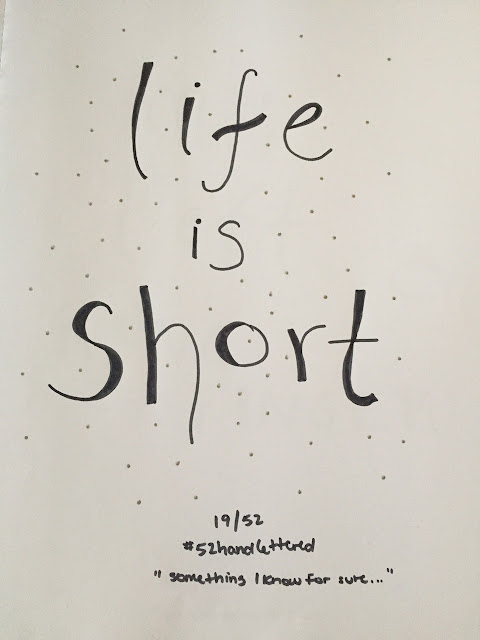 life
is
short
19/52
#52handlettered
"something I know for sure..."